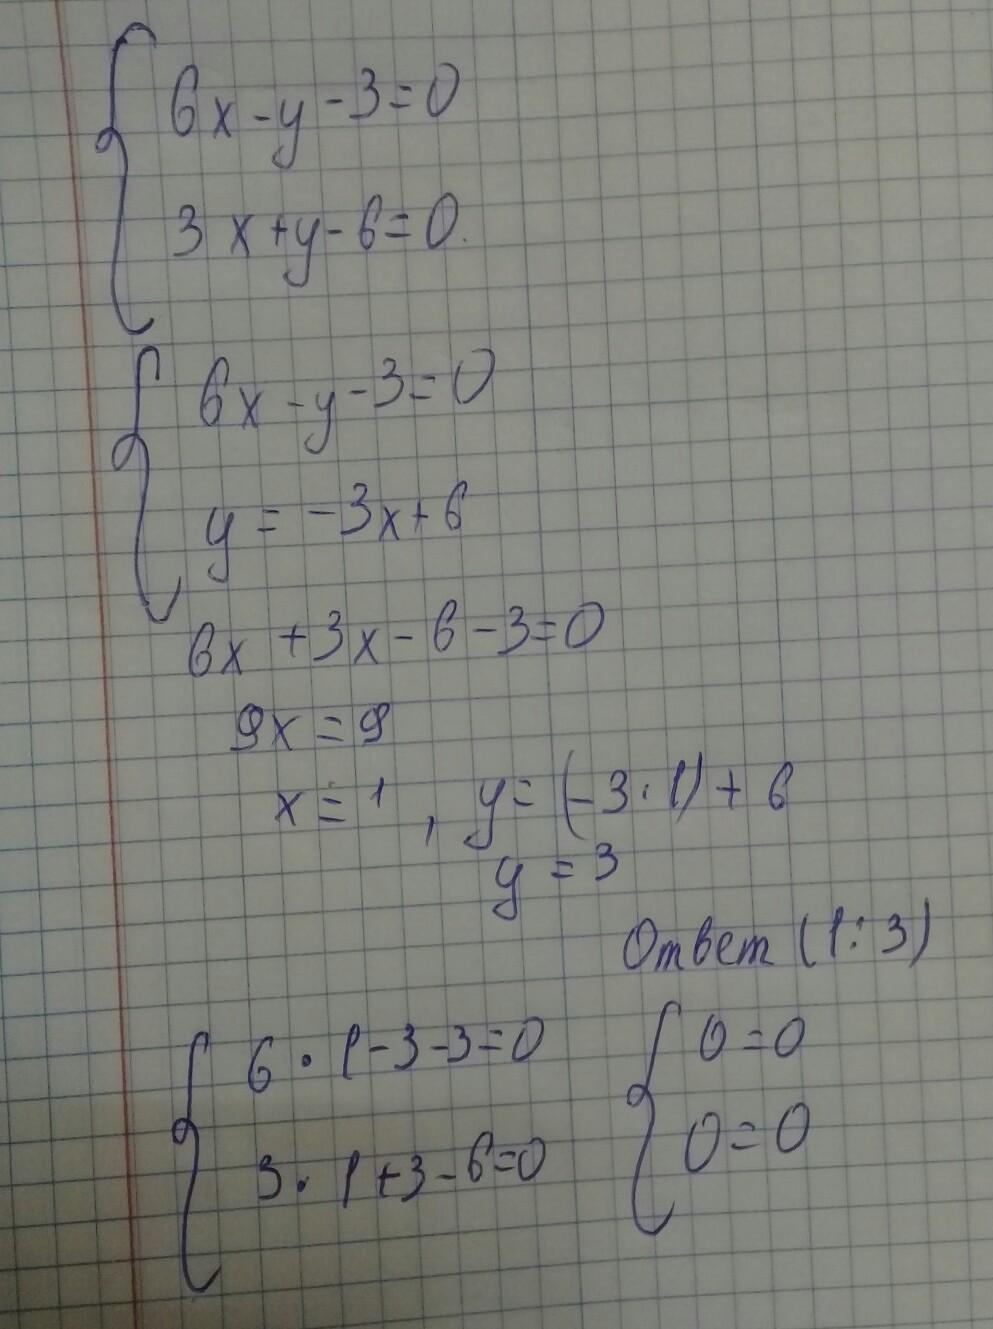 6x - y - 3 = 0
3x + y - 6 = 0.
6x - y - 3 = 0
y = -3x + 6
6x + 3x - 6 - 3 = 0
9x = 9
x = 1 , y = (-3 · 1) + 6
y = 3
Ответ (1 : 3)
6 · 1 - 3 - 3 = 0
3 · 1 + 3 - 6 = 0
0 = 0
0 = 0